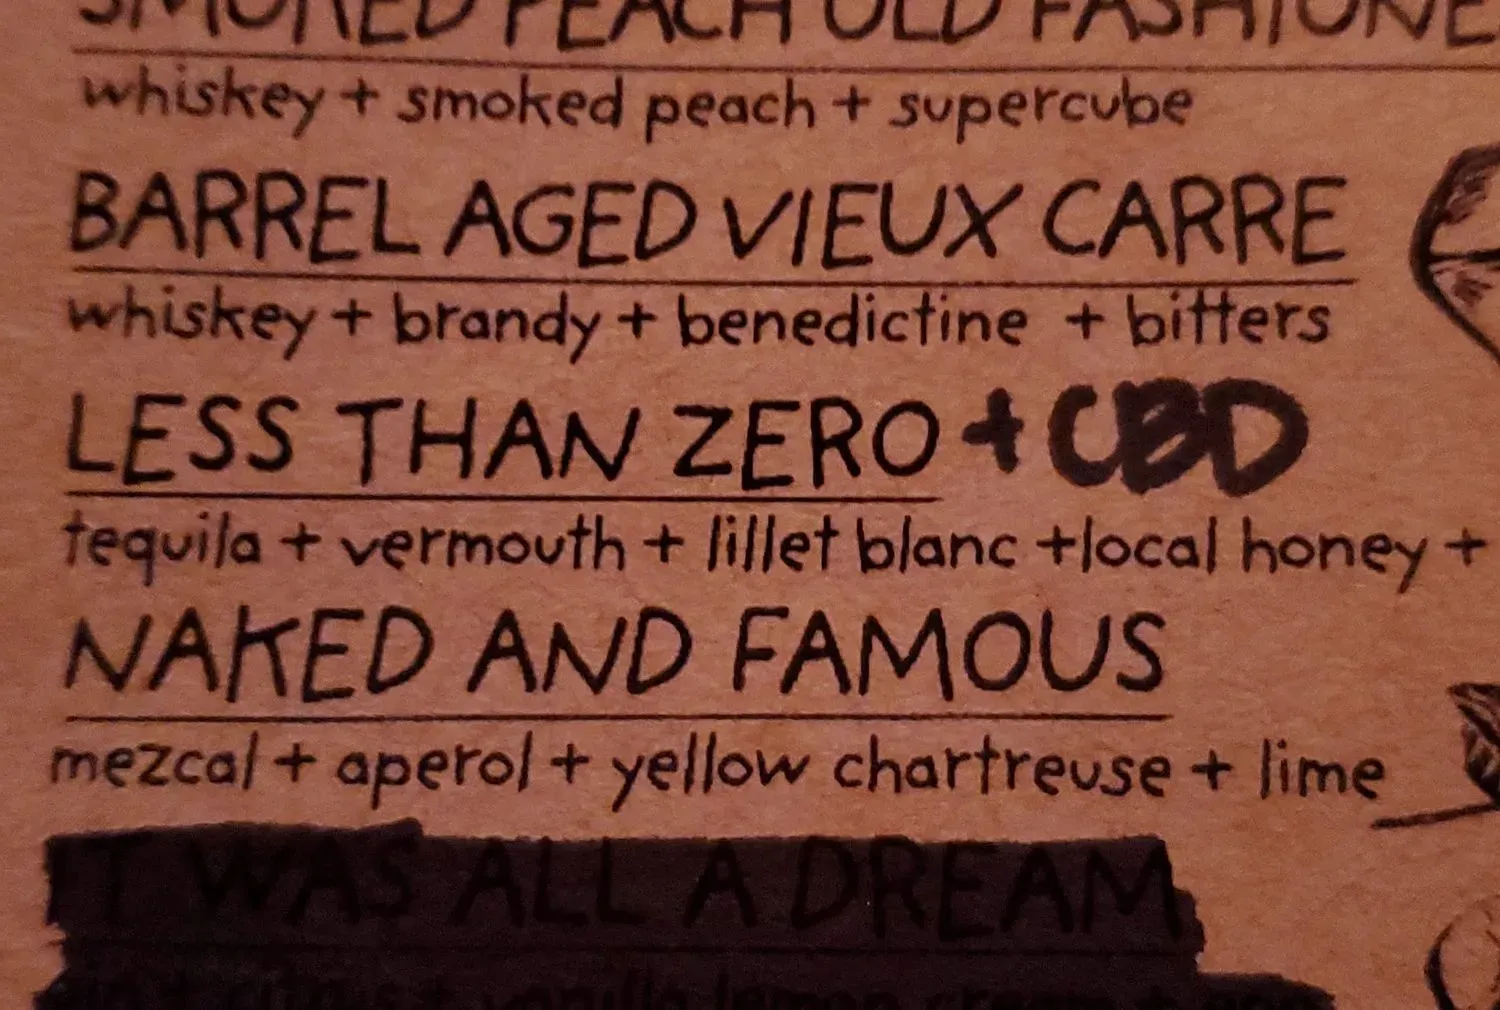 SMOKED PEACH OLD FASHIONE
whiskey + smoked peach + supercube
BARREL AGED VIEUX CARRE
whiskey + brandy + benedictine + bitters
LESS THAN ZERO + CBD
tequila + vermouth + lillet blanc +local honey +
NAKED AND FAMOUS
mezcal + aperol + yellow chartreuse + lime
IT WAS ALL A DREAM
gin + citrus + vanilla lemon cream +